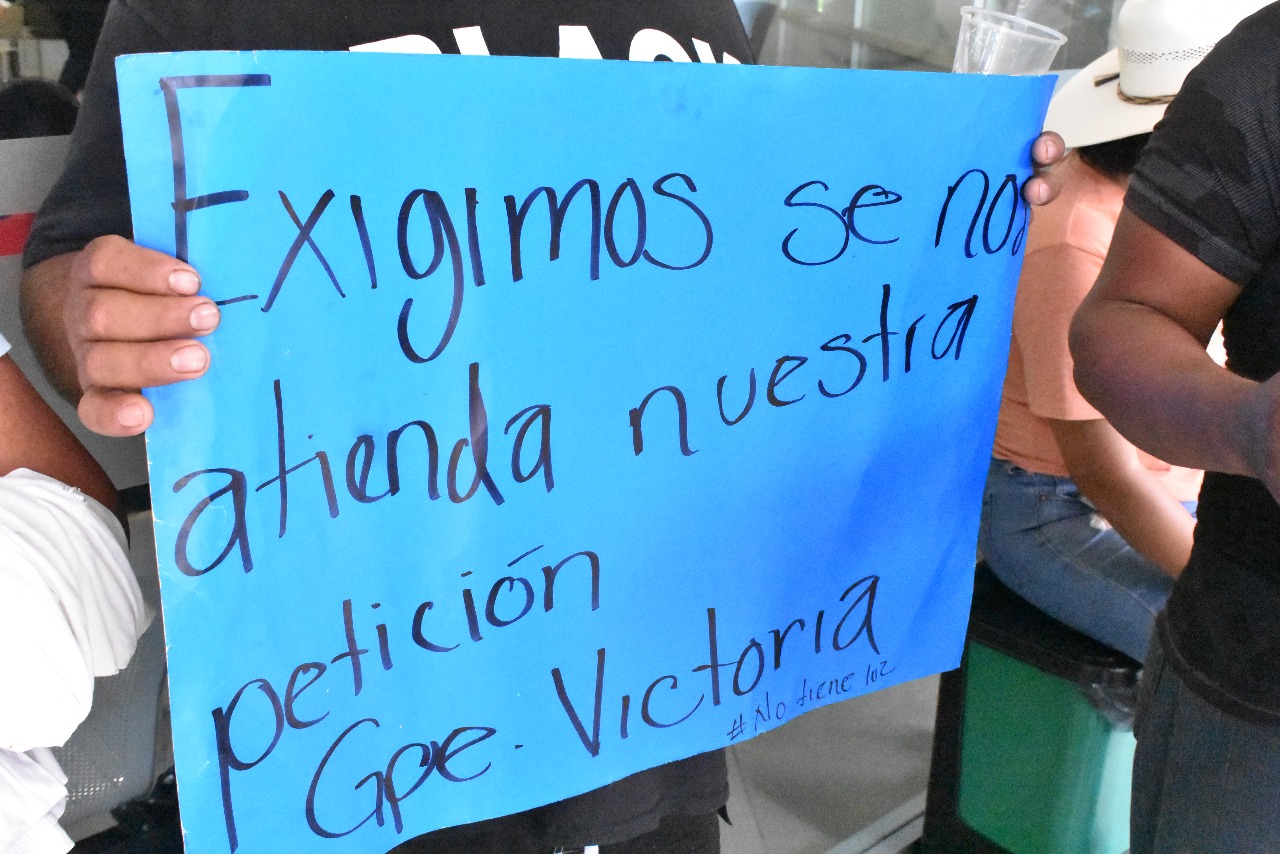 BLACK
Exigimos se nos
atienda nuestra
petición
Gpe. Victoria
# No tiene luz